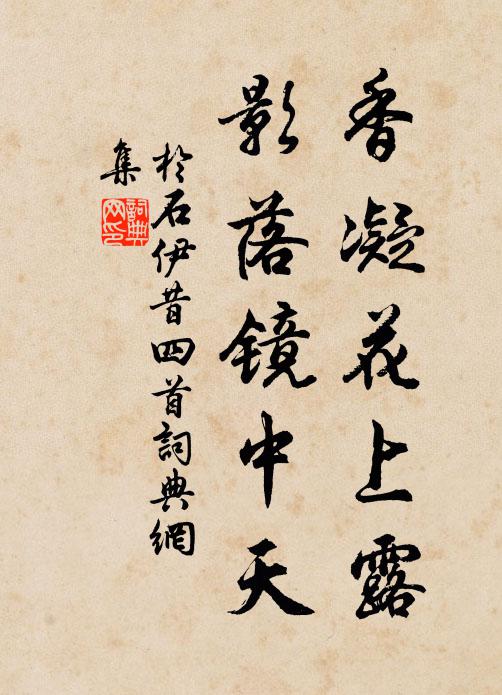 香凝花上露
影落镜中天
於石伊昔四首詞典網
集
詞典
网印